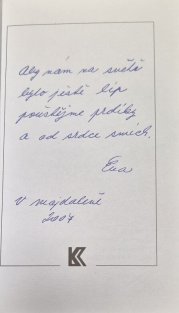 Aby nám na světě
bylo ještě líp
pouštějme prdíky
a od srdce smích.
Eva
V Majdaleně
2007
KK